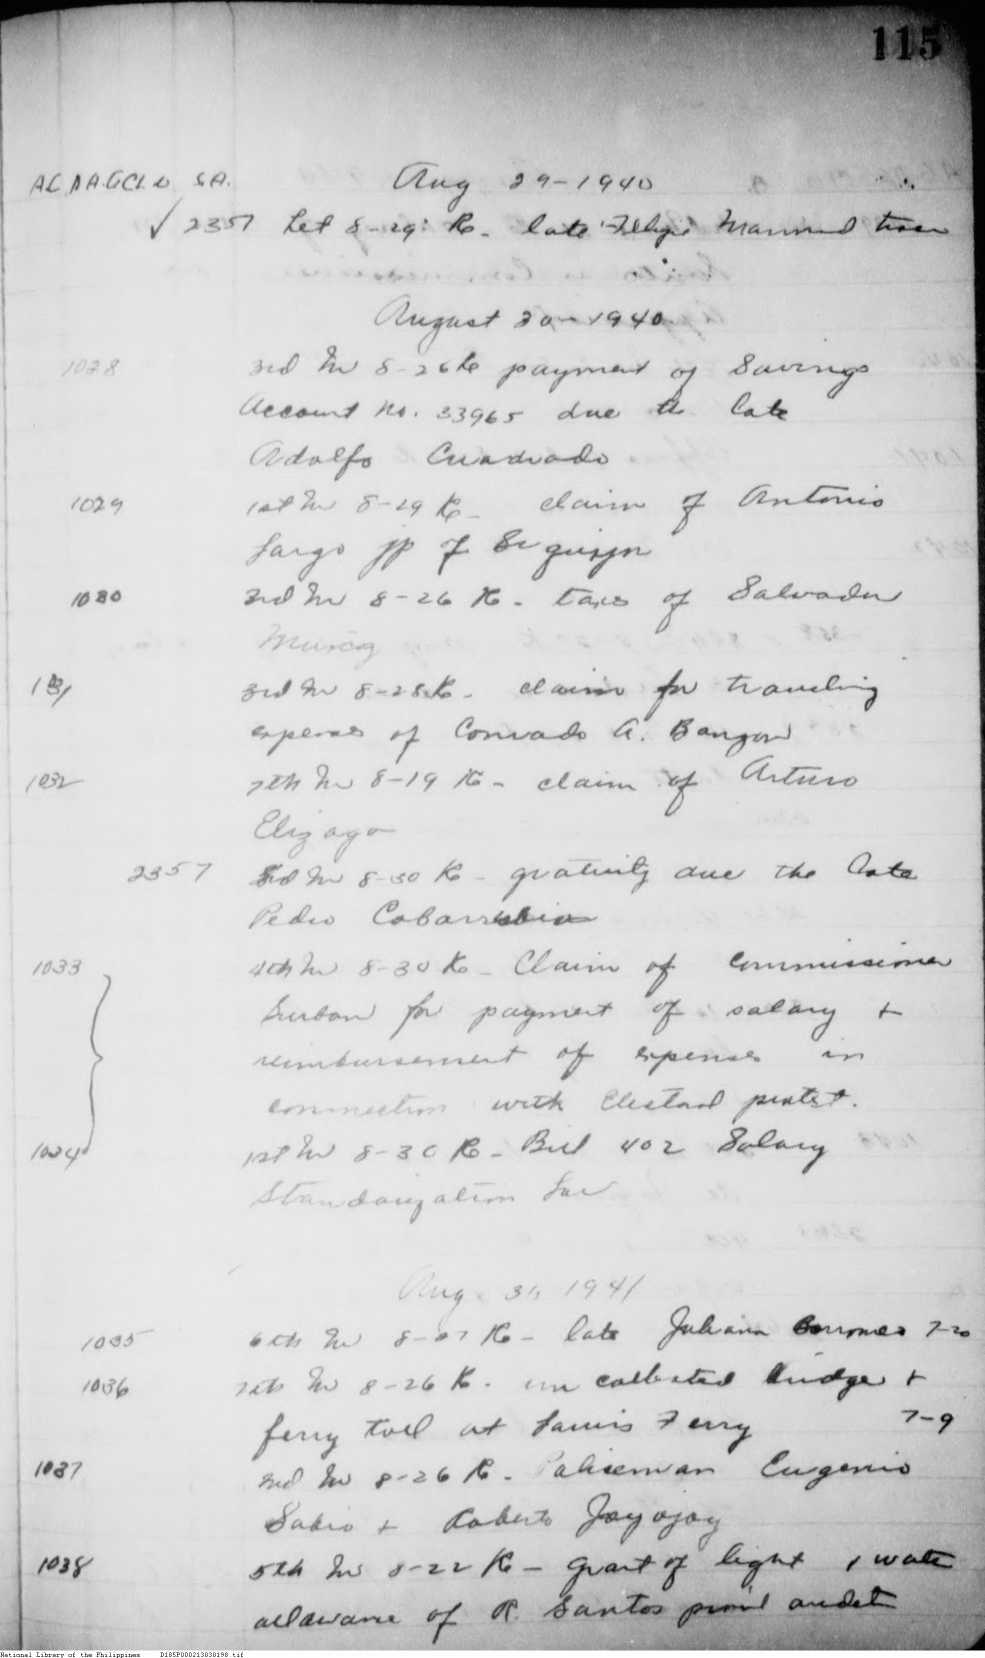 115
Aug 29-1940
✓ 2357 Let 8-29: Re- late Felipe trea
August 30-1940
1028 3rd In 8-26 Re payment of Savings
Account No. 33965 due to late
Adolfo Cuadrado
1029 1st In 8-29 Re- claim of Antonio
Largo jp of
1030 3rd In 8-26 Re- taxes of Salvador
1031 3rd In 8-28 Re- claim for traveling
expenses of Conrado A. Bangon
1032 7th In 8-19 Re- claim of Arturo
Elizaga
2357 3rd In 8-30 Re- gratuity due the late
Pedro Cabarrubia
1033 4th In 8-30 Re- Claim of Commissioner
for payment of salary +
reimbursement of expenses in
connection with Electoral protest.
1034 1st In 8-30 Re- Bill 402 Salary
Standarization Law
Aug. 31, 1941
1035 6th In 8-27 Re- late Juliana Borromeo 7-20
1036 7th In 8-26 Re- un collected bridge +
ferry toll at Ferry 7-9
1037 3rd In 8-26 Re- Policeman Eugenio
Sabio + Roberto Jayojoy
1038 5th In 8-22 Re- grant of light, water
allowance of R. Santos prov'l audit
National Library of the Philippines D185P000213030198.tif